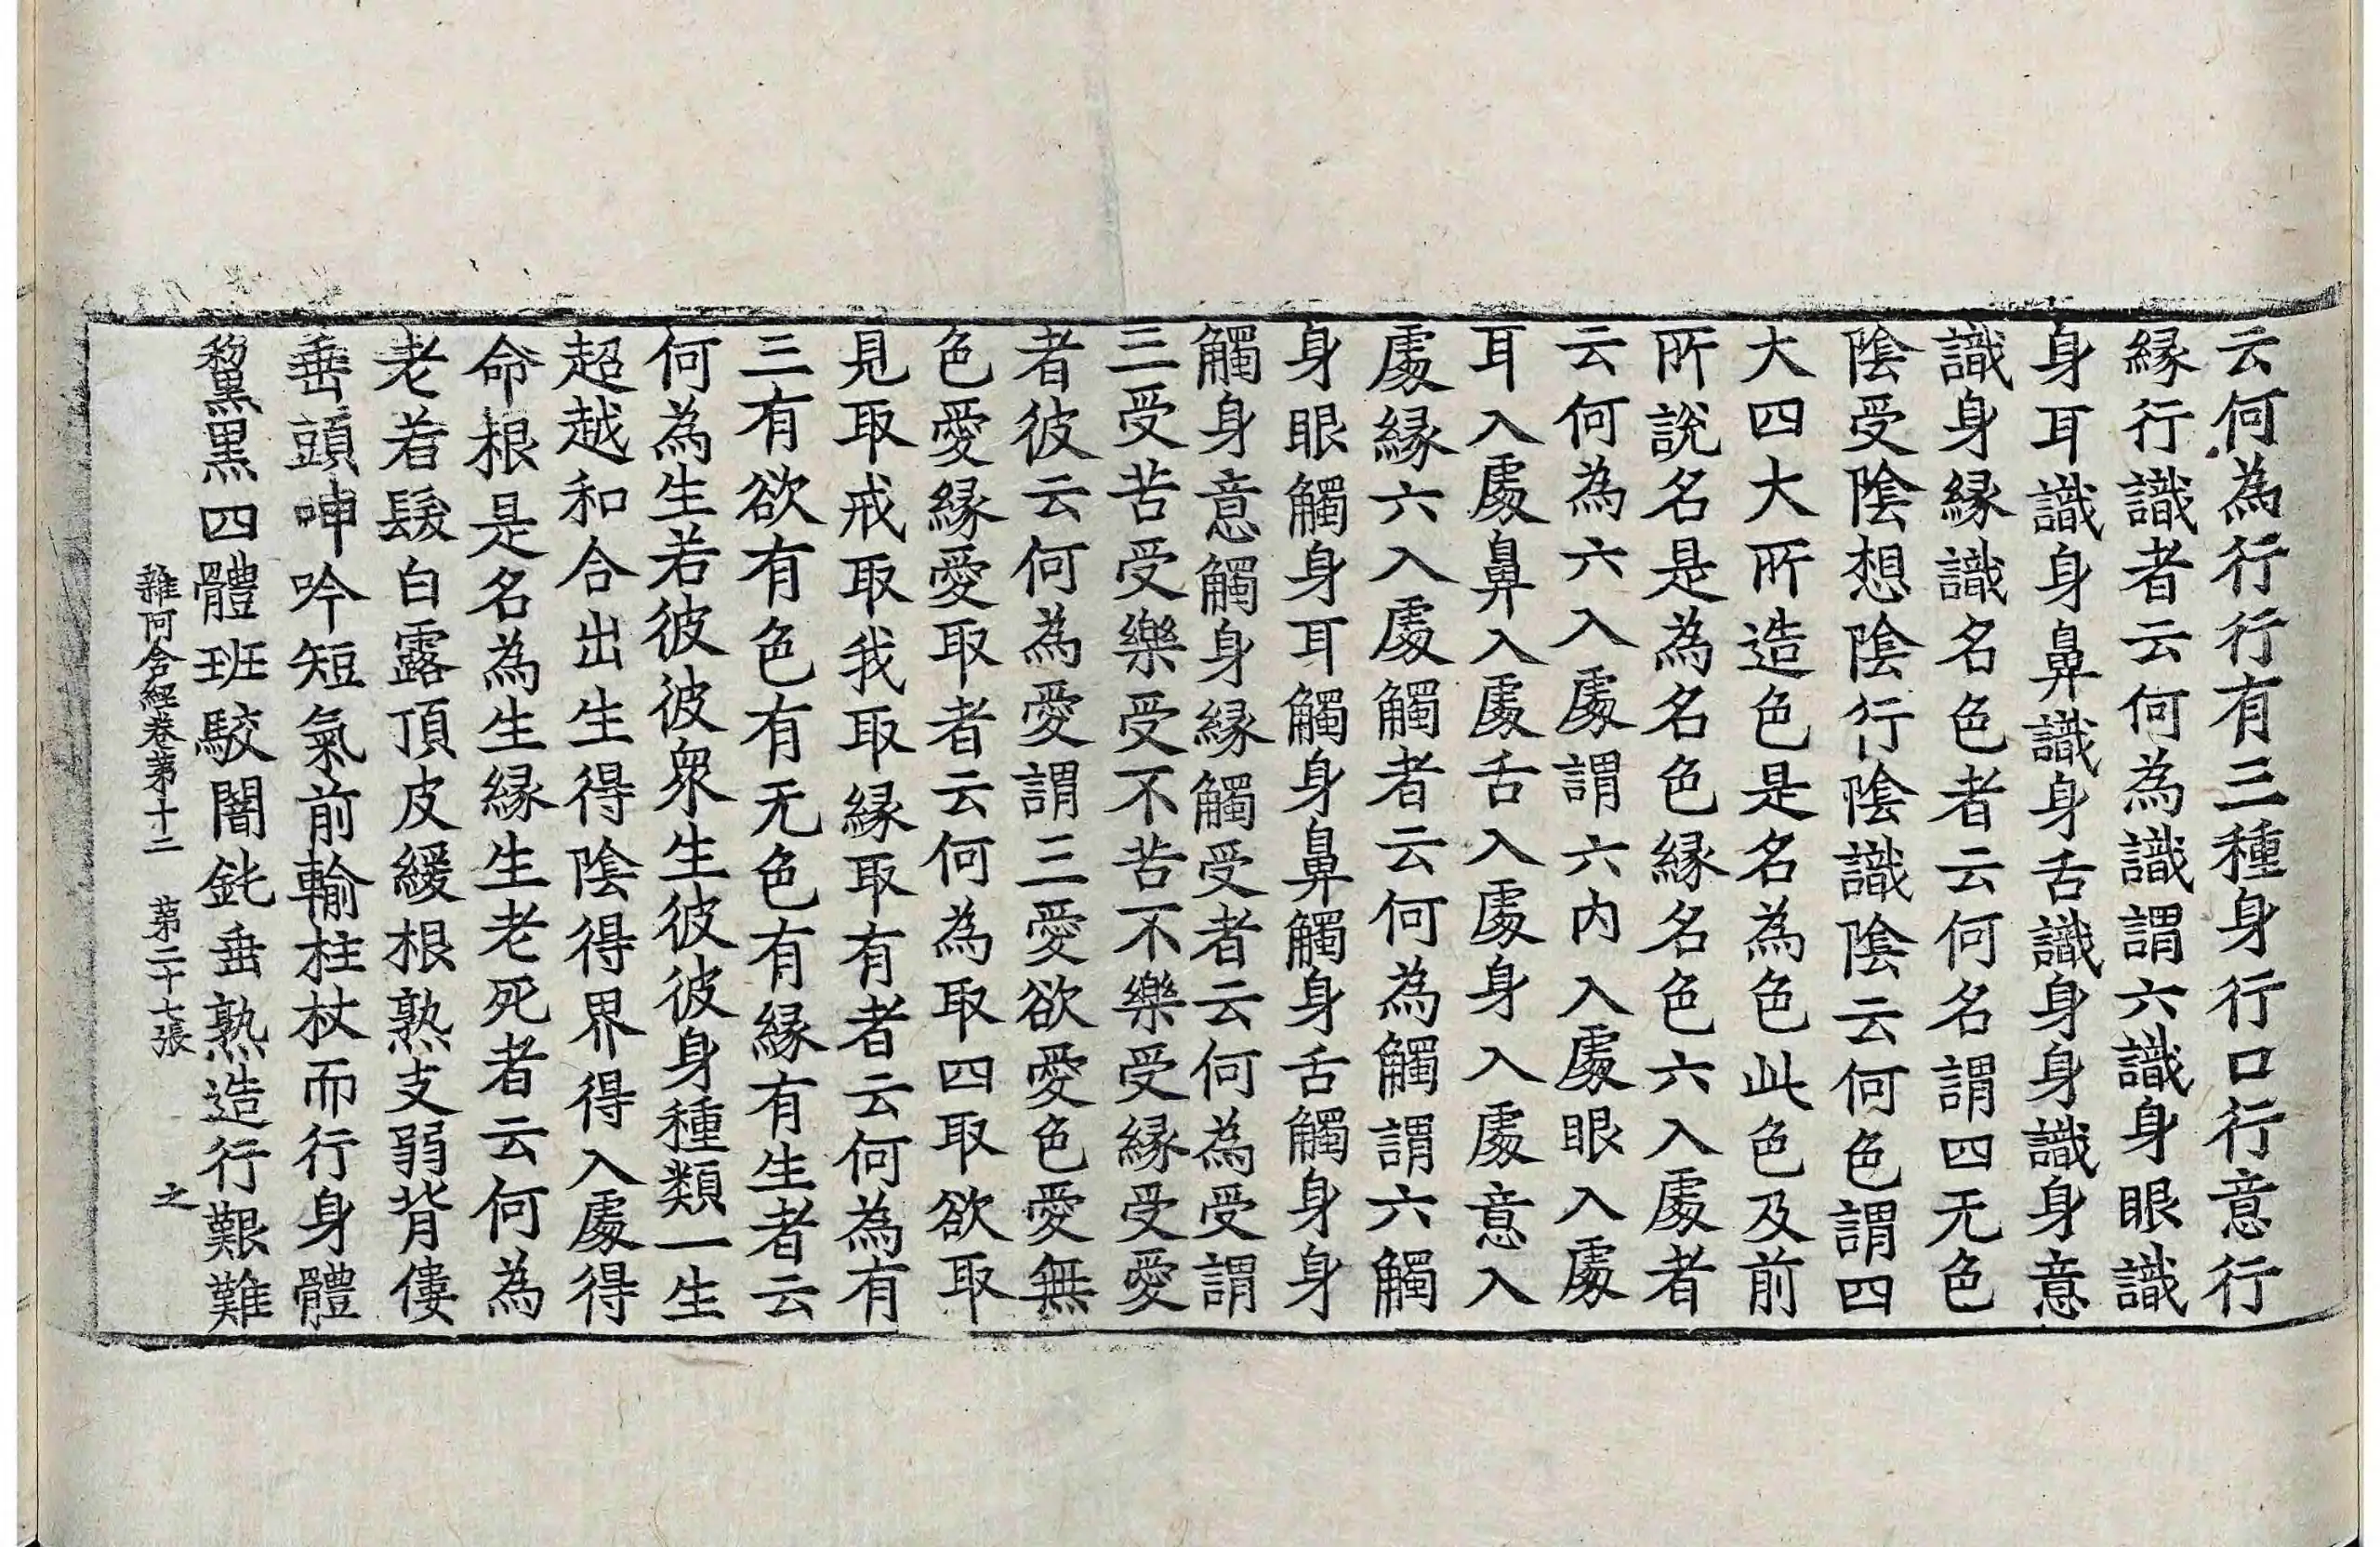 云何為行行有三種身行口行意行
縁行識者云何為識謂六識身眼識
身耳識身鼻識身舌識身身識身意
識身縁識名色者云何名謂四无色
陰受陰想陰行陰識陰云何色謂四
大四大所造色是名為色此色及前
所說名是為名色縁名色六入處者
云何為六入處謂六内入處眼入處
耳入處鼻入處舌入處身入處意入
處縁六入處觸者云何為觸謂六觸
身眼觸身耳觸身鼻觸身舌觸身身
觸身意觸身縁觸受者云何為受謂
三受苦受樂受不苦不樂受縁受愛
者彼云何為愛謂三愛欲愛色愛無
色愛縁愛取者云何為取四取欲取
見取戒取我取縁取有者云何為有
三有欲有色有无色有縁有生者云
何為生若彼彼衆生彼彼身種類一生
超越和合出生得陰得界得入處得
命根是名為生縁生老死者云何為
老若髮白露頂皮緩根熟支弱背僂
垂頭呻吟短氣前輸柱杖而行身體
黧黑四體班駮闇鈍垂熟造行艱難
雜阿含經卷第十二　第二十七張　之